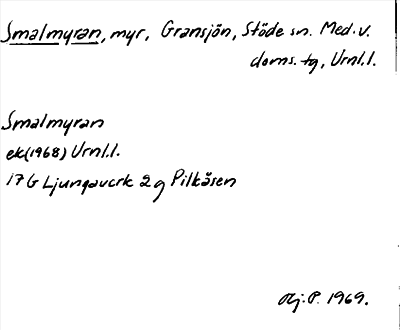 Smalmyran, myr, Gransjön, Stöde sn. Med. v.
doms. tg, Vrnl.l.
Smalmyran
ek(1968) Vrnl.l.
17G Ljungaverk 2g Pilkåsen
Hj. P. 1969.